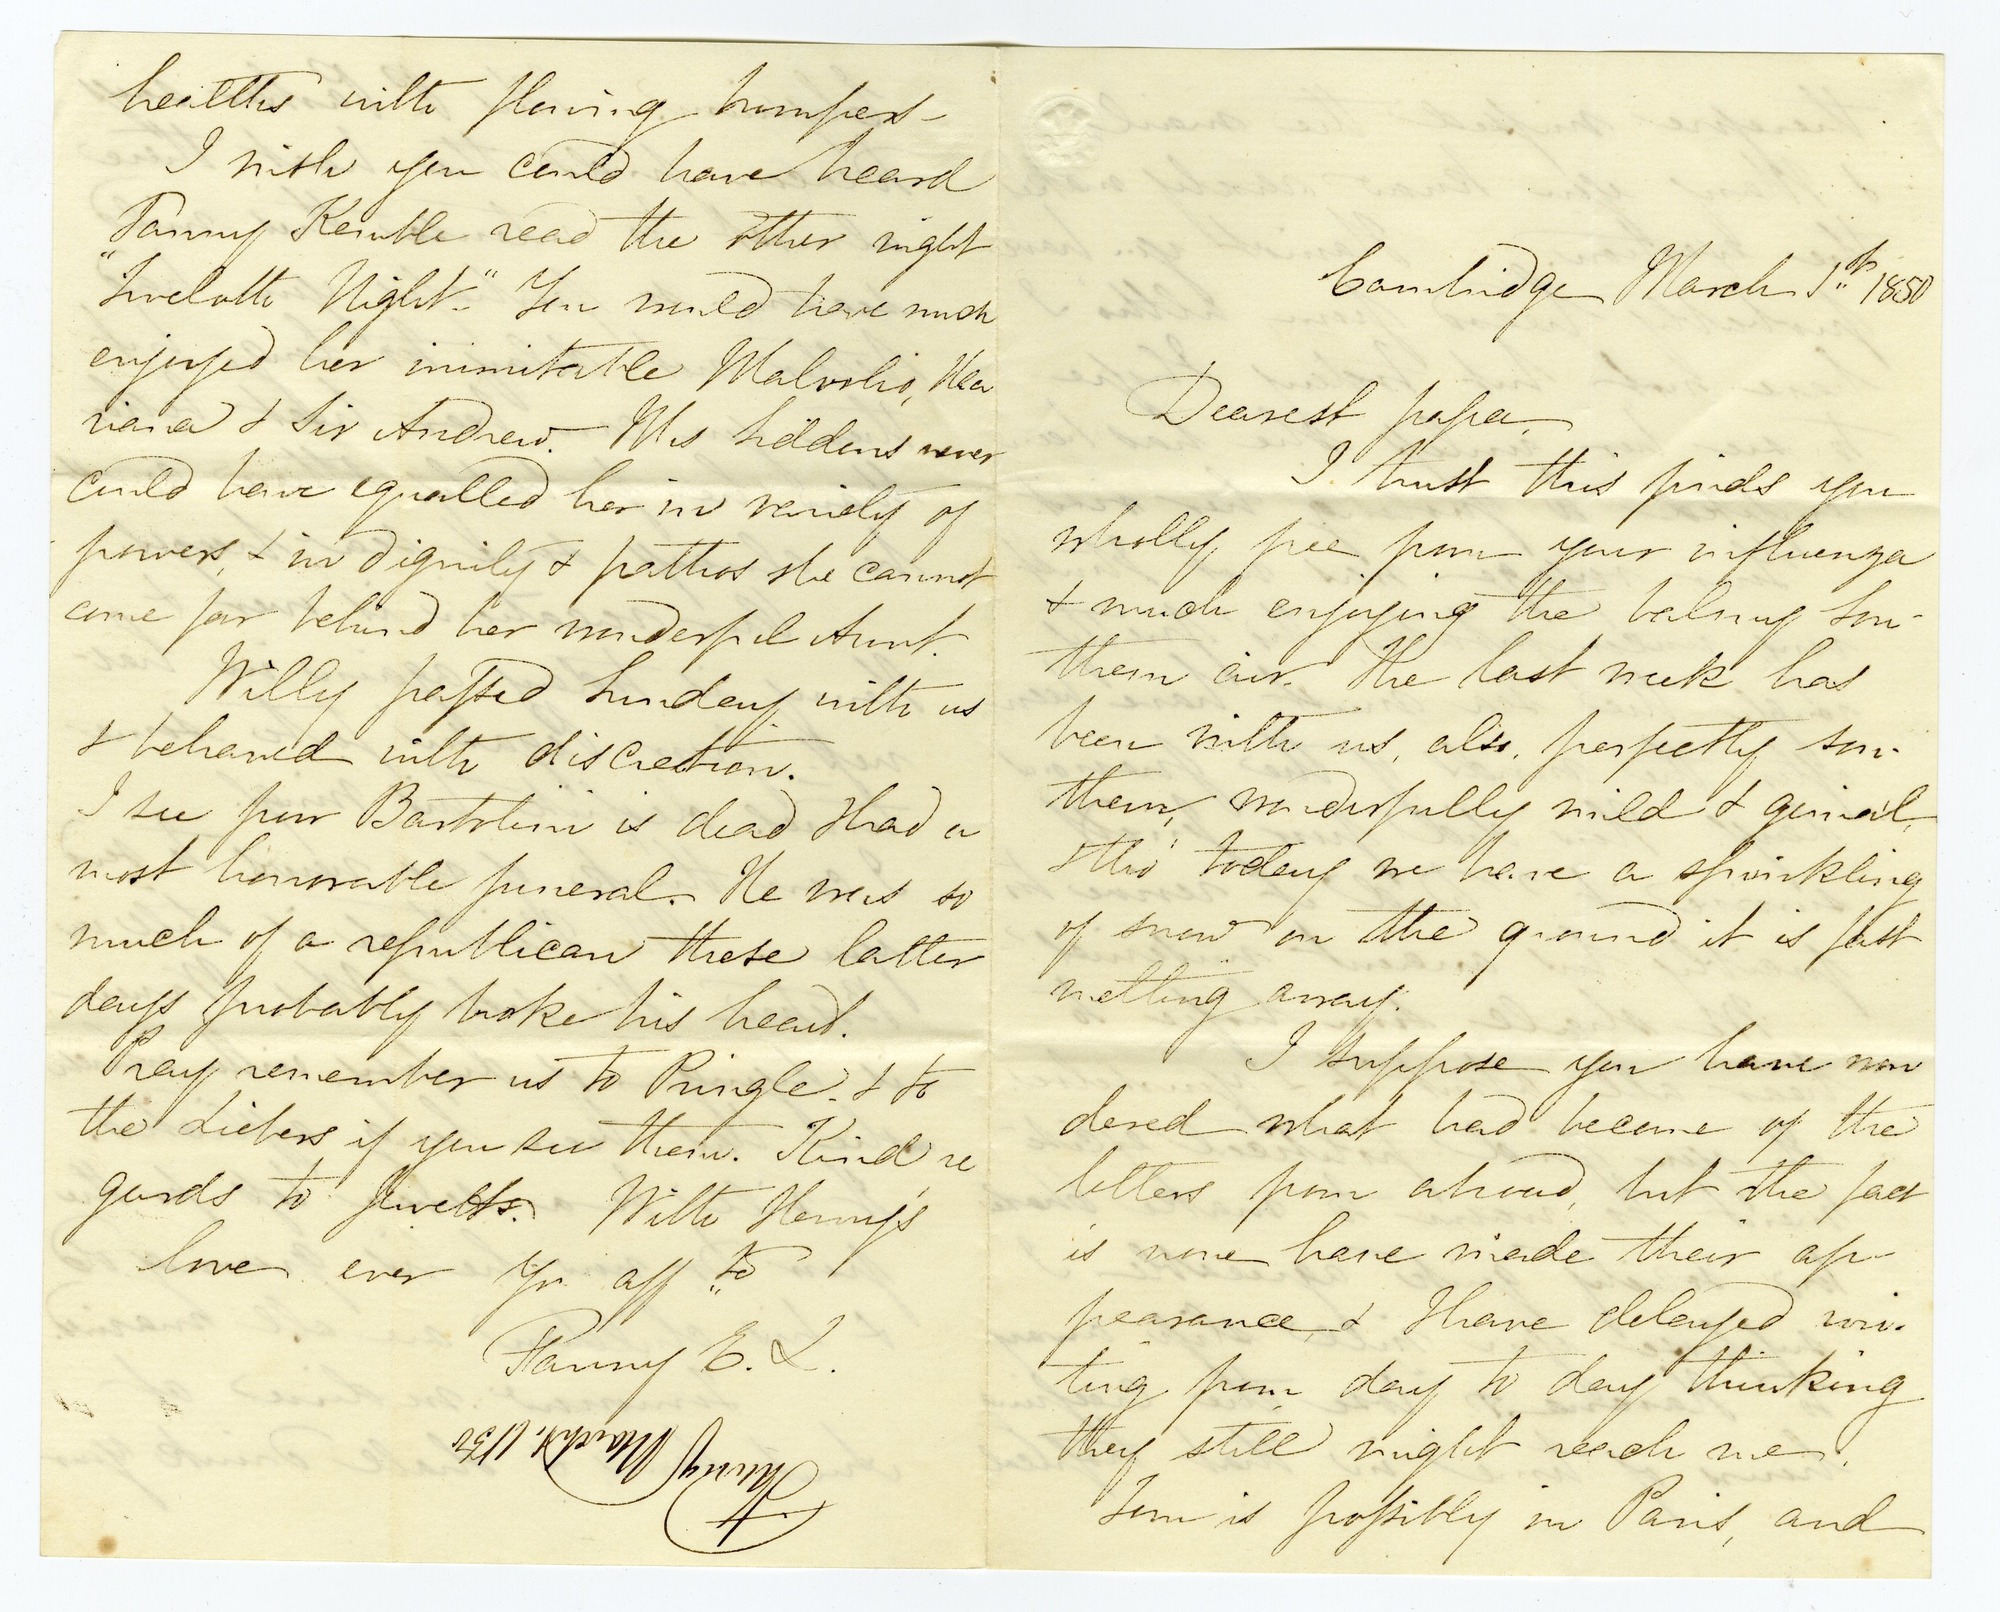 Cambridge March 1st 1850
Dearest papa,
I trust this finds you
wholly free from your influenza
& much enjoying the balmy Sou-
thern air. The last week has
been with us, also, perfectly sou-
thern, wonderfully mild & genial,
& tho' today we have a sprinkling
of snow on the ground it is fast
melting away.
I suppose you have won
dered what had become of the
letters from abroad, but the fact
is none have made their ap-
pearance, & I have delayed wri-
ting from day to day thinking
they still might reach me.
Tom is possibly in Paris, and
healths with flowing bumpers –
I wish you could have heard
Fanny Kemble read the other night
"Twelfth Night." You would have much
enjoyed her inimitable Malvolio,
& Sir Andrew. Mrs Siddons never
could have equalled her in variety of
powers, & in dignity & pathos she cannot
come far behind her wonderful Aunt.
Willy passed Sunday with us
& behaved with discretion.
I see poor Bartolini is dead & had a
most honorable funeral. He was so
much of a republican these latter
days probably broke his heart.
Pray remember us to Pringle. & to
the Liebers if you see them. Kind re
gards to Jewetts. With Henry's
love ever yr aff te
Fanny E. L.
Fanny March 1, 1850